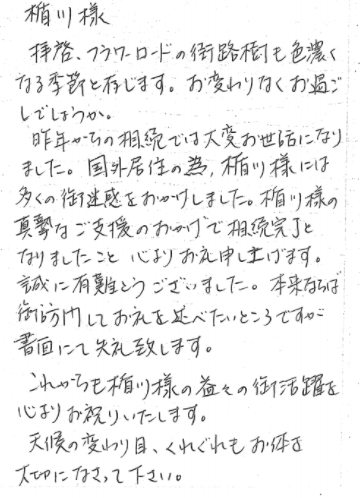 楯川様
拝啓、フラワーロードの街路樹も色濃く
なる季節と存じます。お変わりなくお過ご
しでしょうか。
昨年からの相続では大変お世話になり
ました。国外居住の為、楯川様には
多くの御迷惑をおかけしました。楯川様の
真摯なご支援のおかげで相続完了と
なりましたこと 心よりお礼申し上げます。
誠に有難とうございました。本来ならば
御訪問してお礼を述べたいところですが
書面にて失礼致します。
これからも楯川様の益々の御活躍を
心よりお祝りいたします。
天候の変わり目、くれぐれもお体を
大切になさって下さい。